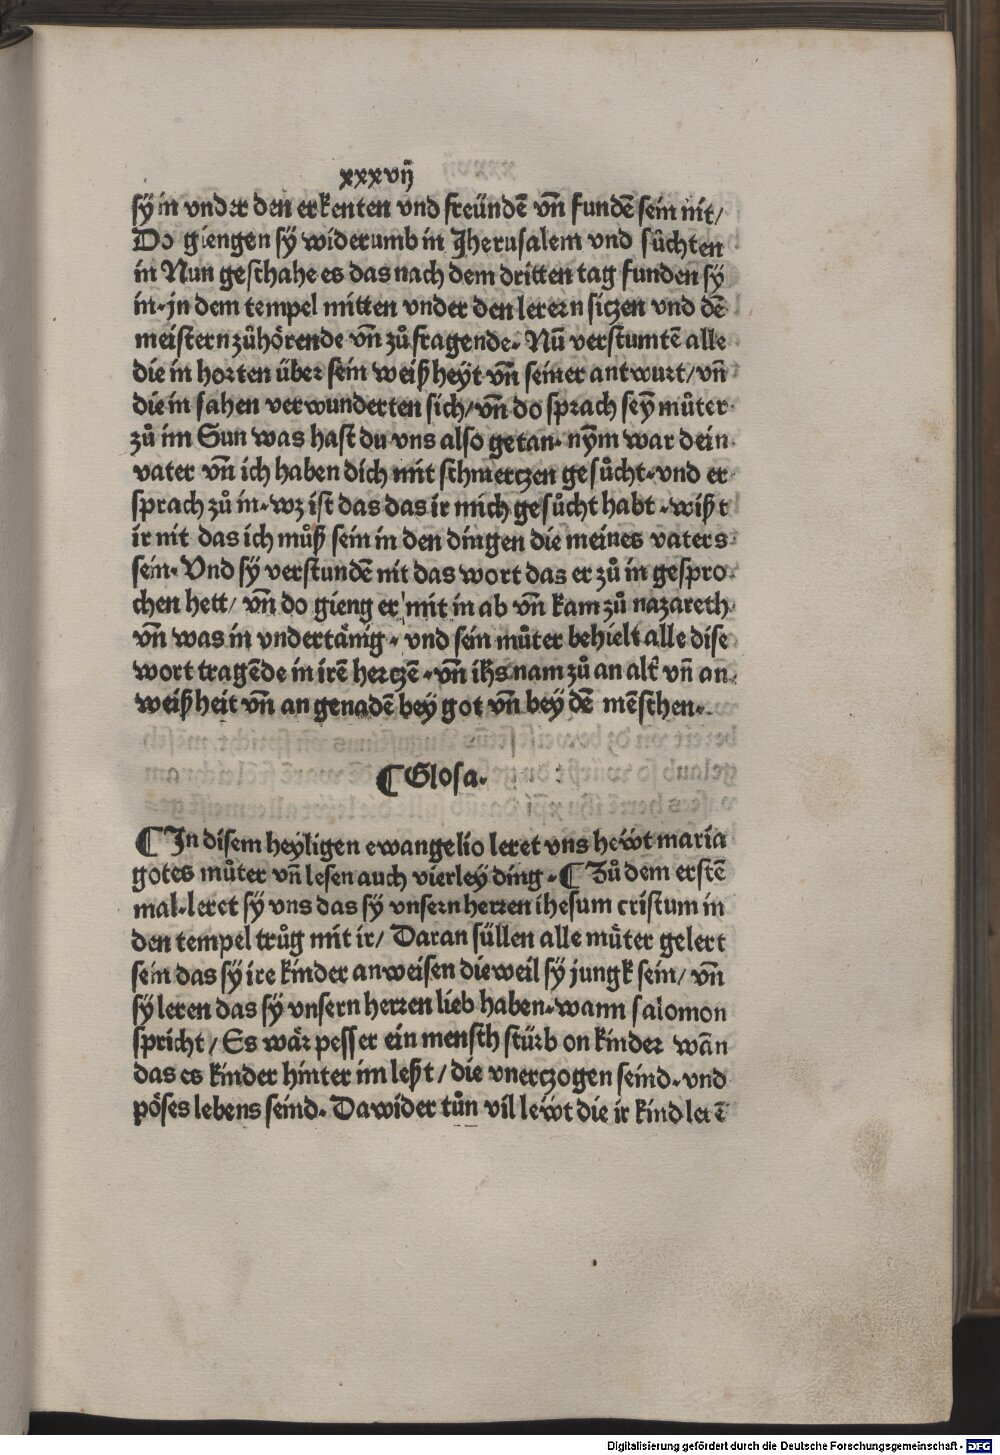 xxxvij
sÿ in vnder den erkenten vnd freündē vn̄ fundē sein nit/
Do giengen sÿ widerumb in Jherusalem vnd sůchten
in Nun geschahe es das nach dem dritten tag funden sÿ
in·jn dem tempel mitten vnder den lerern siczen vnd dē
meistern zůhörende vn̄ zů fragende· Nū verstumtē alle
die in horten über sein weiß heyt vn̄ seiner antwurt/ vn̄
die in sahen verwunderten sich/ vn̄ do sprach seȳ můter
zů im Sun was hast du vns also getan· nȳm war dein
vater vn̄ ich haben dich mit schmerczen gesůcht· vnd er
sprach zů in· wz ist das das ir mich gesůcht habt · wißt
ir nit das ich můß sein in den dingen die meines vaters
sein· Vnd sÿ verstundē nit das wort das er zů in gespro
chen hett/ vn̄ do gieng er mit in ab vn̄ kam zů nazareth
vn̄ was in vndertänig · vnd sein můter behielt alle dise
wort tragēde in irē herczē · vn̄ ihs nam zů an alt̄ vn̄ an
weißheit vn̄ an genadē bey got vn̄ bey dē mēschen·
¶ Glosa·
¶ In disem heyligen ewangelio leret vns hewt maria
gotes můter vn̄ lesen auch vierley ding · ¶ Zů dem erstē
mal·leret sÿ vns das sÿ vnsern herren ihesum cristum in
den tempel trůg mit ir/ Daran süllen alle můter gelert
sein das sÿ ire kinder anweisen die weil sÿ jungk sein/ vn̄
sÿ leren das sÿ vnsern herren lieb haben· wann salomon
spricht/ Es wär pesser ein mensch stürb on kinder wān
das es kinder hinter im leßt/ die vnerczogen seind· vnd
pöses lebens seind· Dawider tůn vil lewt die ir kind lerē
Digitalisierung gefördert durch die Deutsche Forschungsgemeinschaft - DFG